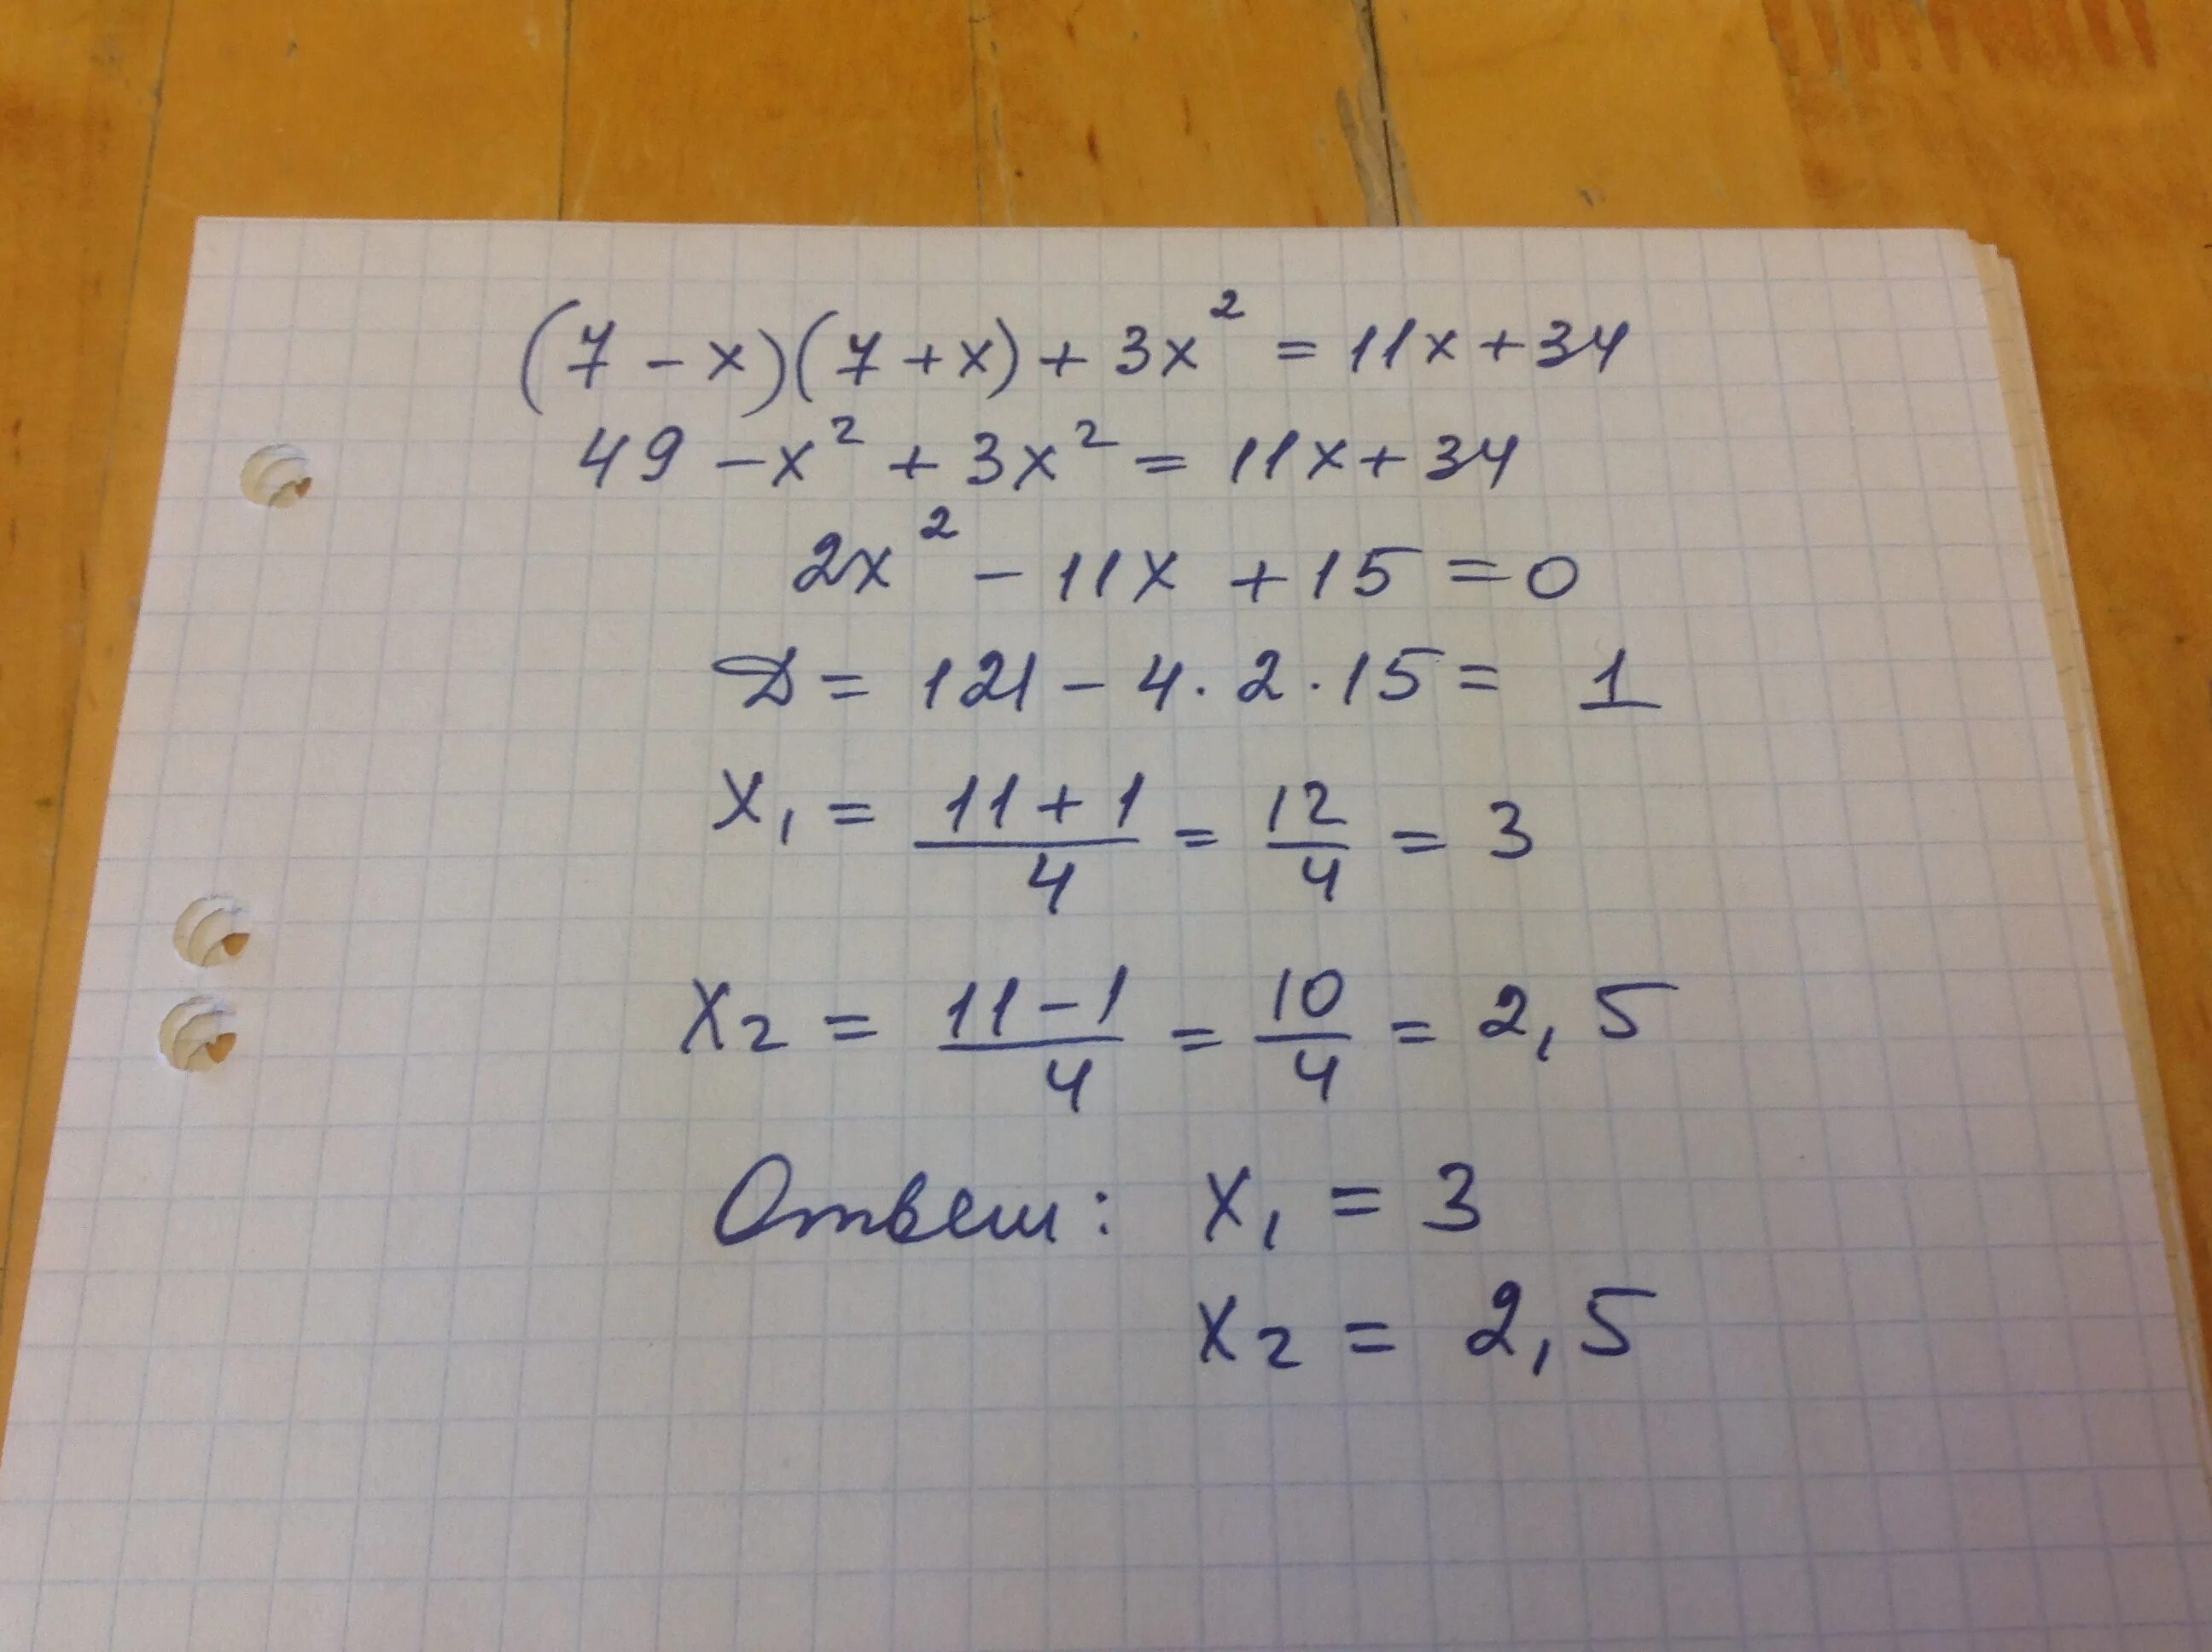 (7 - x)(7 + x) + 3x² = 11x + 34
49 - x² + 3x² = 11x + 34
2x² - 11x + 15 = 0
D = 121 - 4 · 2 · 15 = 1
x₁ = (11 + 1)/4 = 12/4 = 3
x₂ = (11 - 1)/4 = 10/4 = 2,5
Ответ: x₁ = 3
x₂ = 2,5